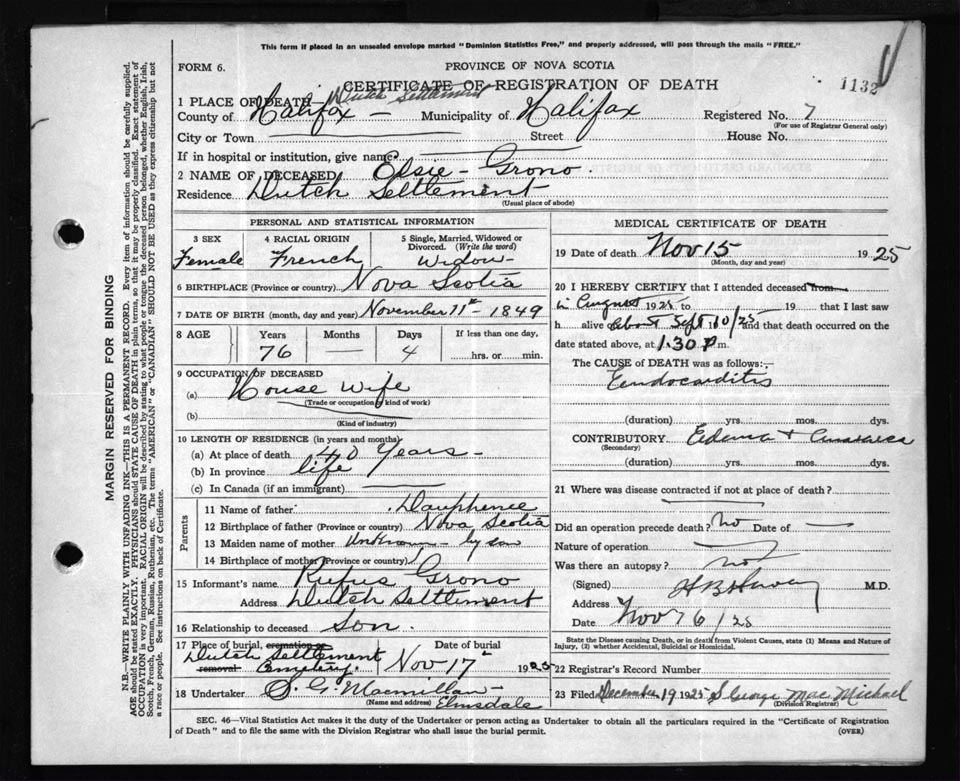 This form if placed in an unsealed envelope marked "Dominion Statistics Free," and properly addressed, will pass through the mails "FREE."
FORM 6.
PROVINCE OF NOVA SCOTIA
1132
CERTIFICATE OF REGISTRATION OF DEATH
1 PLACE OF DEATH— Dutch Settlement
County of Halifax — Municipality of Halifax Registered No. 7
(For use of Registrar General only)
City or Town Street House No.
If in hospital or institution, give name
2 NAME OF DECEASED Elsie Grono.
Residence Dutch Settlement
(Usual place of abode)
PERSONAL AND STATISTICAL INFORMATION
3 SEX
Female
4 RACIAL ORIGIN
French
5 Single, Married, Widowed or
Divorced. (Write the word)
Widow
6 BIRTHPLACE (Province or country) Nova Scotia
7 DATE OF BIRTH (month, day and year) November 11th - 1849
8 AGE Years Months Days If less than one day,
76 — 4 hrs. or min.
9 OCCUPATION OF DECEASED
(a) House wife
(Trade or occupation or kind of work)
(b)
(Kind of industry)
10 LENGTH OF RESIDENCE (in years and months)
(a) At place of death 40 Years -
(b) In province life
(c) In Canada (if an immigrant)
Parents
11 Name of father Dauphenee
12 Birthplace of father (Province or country) Nova Scotia
13 Maiden name of mother Unknown - by son
14 Birthplace of mother (Province or country)
15 Informant's name Rufus Grono
Address Dutch Settlement
16 Relationship to deceased Son.
17 Place of burial, cremation or Date of burial
removal Dutch Settlement
Cemetery. Nov 17" 1925
18 Undertaker S. G. Macmillan -
(Name and address) Elmsdale
MEDICAL CERTIFICATE OF DEATH
19 Date of death Nov 15 1925
(Month, day and year)
20 I HEREBY CERTIFY that I attended deceased from
in August 1925 to 19 that I last saw
h alive about Sept 10/25 and that death occurred on the
date stated above, at 1.30 P.m.
The CAUSE of DEATH was as follows:
Endocarditis
(duration) yrs. mos. dys.
CONTRIBUTORY Edema + Anasarca
(Secondary)
(duration) yrs. mos. dys.
21 Where was disease contracted if not at place of death?
Did an operation precede death? no Date of —
Nature of operation
Was there an autopsy? no
(Signed) M.D.
Address
Date Nov 76/25
State the Disease causing Death, or in death from Violent Causes, state (1) Means and Nature of
Injury, (2) whether Accidental, Suicidal or Homicidal.
22 Registrar's Record Number
23 Filed December 19 1925 S George MacMichael
(Division Registrar)
SEC. 46—Vital Statistics Act makes it the duty of the Undertaker or person acting as Undertaker to obtain all the particulars required in the "Certificate of Registration
of Death" and to file the same with the Division Registrar who shall issue the burial permit.
(OVER)
MARGIN RESERVED FOR BINDING
N.B.—WRITE PLAINLY WITH UNFADING INK—THIS IS A PERMANENT RECORD. Every item of information should be carefully supplied.
AGE should be stated EXACTLY. PHYSICIANS should STATE CAUSE OF DEATH in plain terms, so that it may be properly classified. Exact statement of
OCCUPATION is very important. RACIAL ORIGIN will be described by stating to what people or tongue the deceased person belonged, whether English, Irish,
Scotch, French, German, Russian, Ruthenian, etc. The terms "AMERICAN" or "CANADIAN" SHOULD NOT BE USED as they express citizenship but not
a race or people. See instructions on back of Certificate.